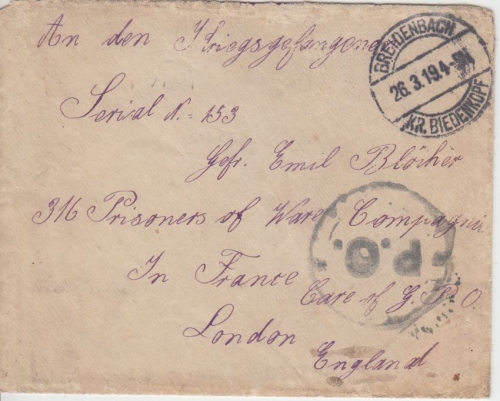 An den Kriegsgefangenen
BREIDENBACH
26.3.19.4-5N
KR. BIEDENKOPF
Serial N. 153
Gefr. Emil Blöcher
316 Prisoners of Ware Compagnie
P.O.
In France
Care of G.P.O.
London
England